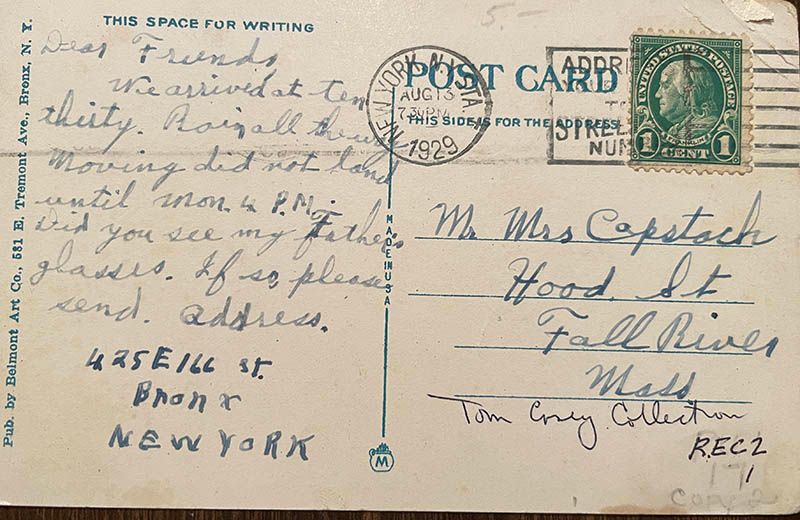 THIS SPACE FOR WRITING
5.-
Dear Friends,
We arrived at ten
thirty. Rain all the way
Moving did not land
until Mon. 4 P.M.
Did you see my Father's
glasses. If so, please
send. address.
425 E 166 st.
Bronx
NEW YORK
Pub. by Belmont Art Co., 581 E. Tremont Ave., Bronx, N. Y.
MADE IN USA
M
POST CARD
THIS SIDE IS FOR THE ADDRESS
NEW YORK, N.Y. STA.
AUG 13
7 30 PM
1929
ADDRE
TO
STREE
NUM
UNITED STATES POSTAGE
FRANKLIN
1 CENT 1
Mr Mrs Capstock
Hood St
Fall River
Mass
Tom Cosey Collection
REC 2
1
171
Copy 2